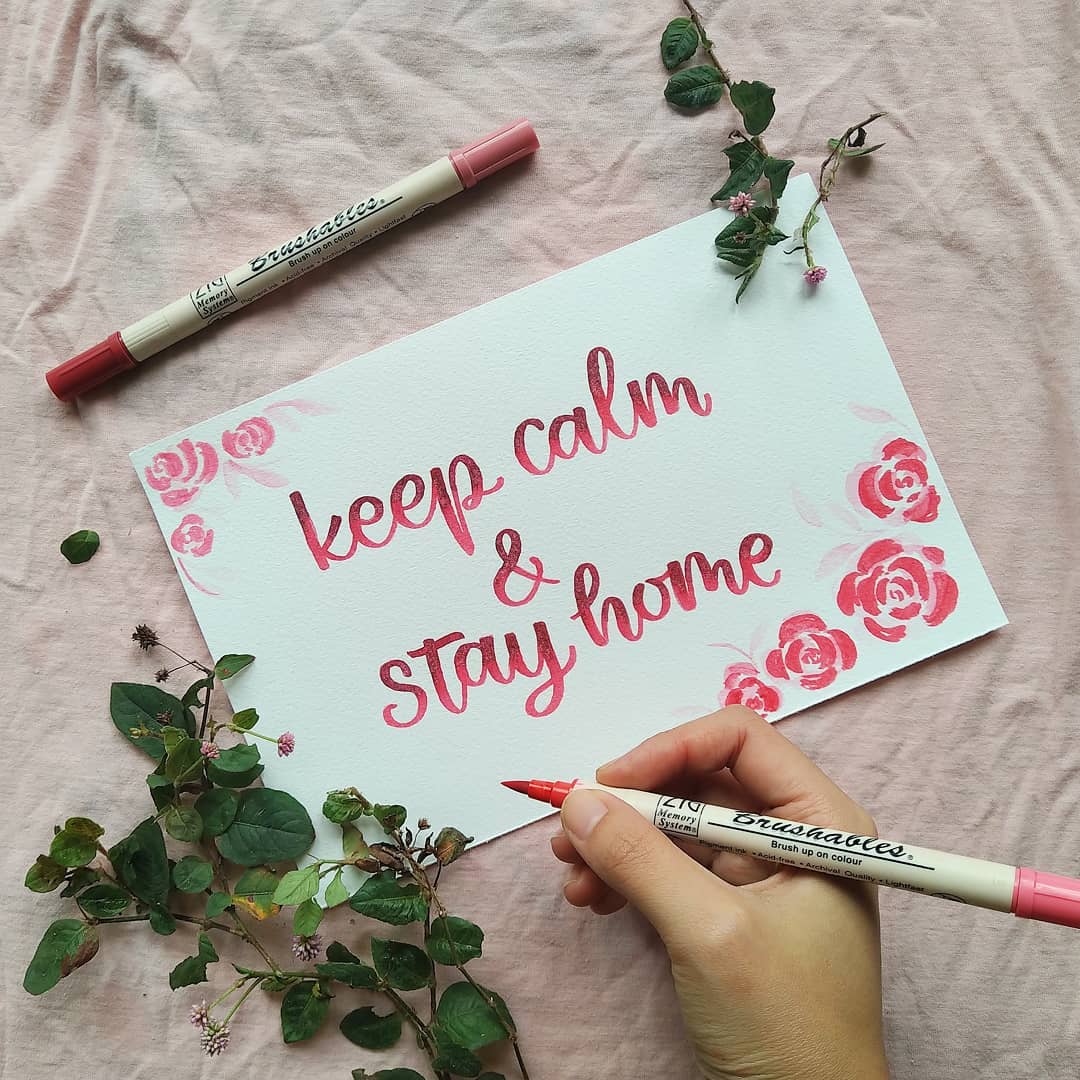 ZIG
Memory
Systems®
Brushables®
Brush up on colour
Pigment ink • Acid-free • Archival Quality • Lightfast
keep calm
&
stay home
ZIG
Memory
Systems®
Brushables®
Brush up on colour
Pigment ink • Acid-free • Archival Quality • Lightfast